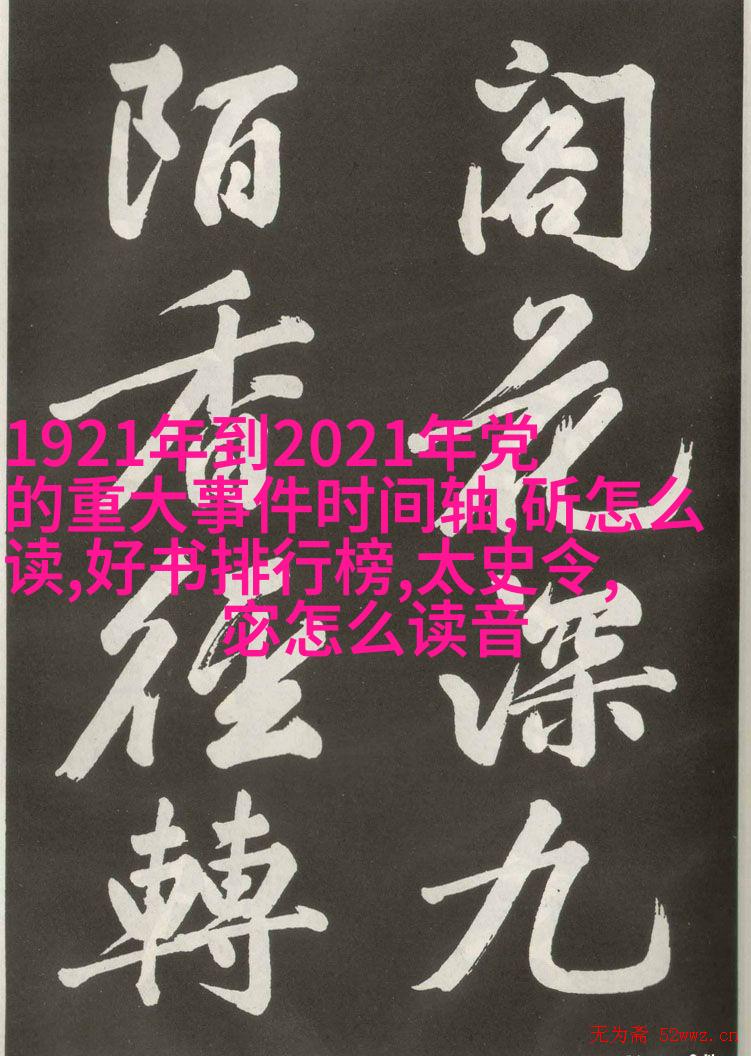 閣花深九
陌香徑轉
1921年到2021年党
的重大事件时间轴,斫怎么
读,好书排行榜,太史令,
宓怎么读音
无为斋 52wwz.cn